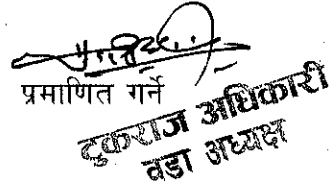 प्रमाणित गर्ने
टुकराज अधिकारी
वडा अध्यक्ष